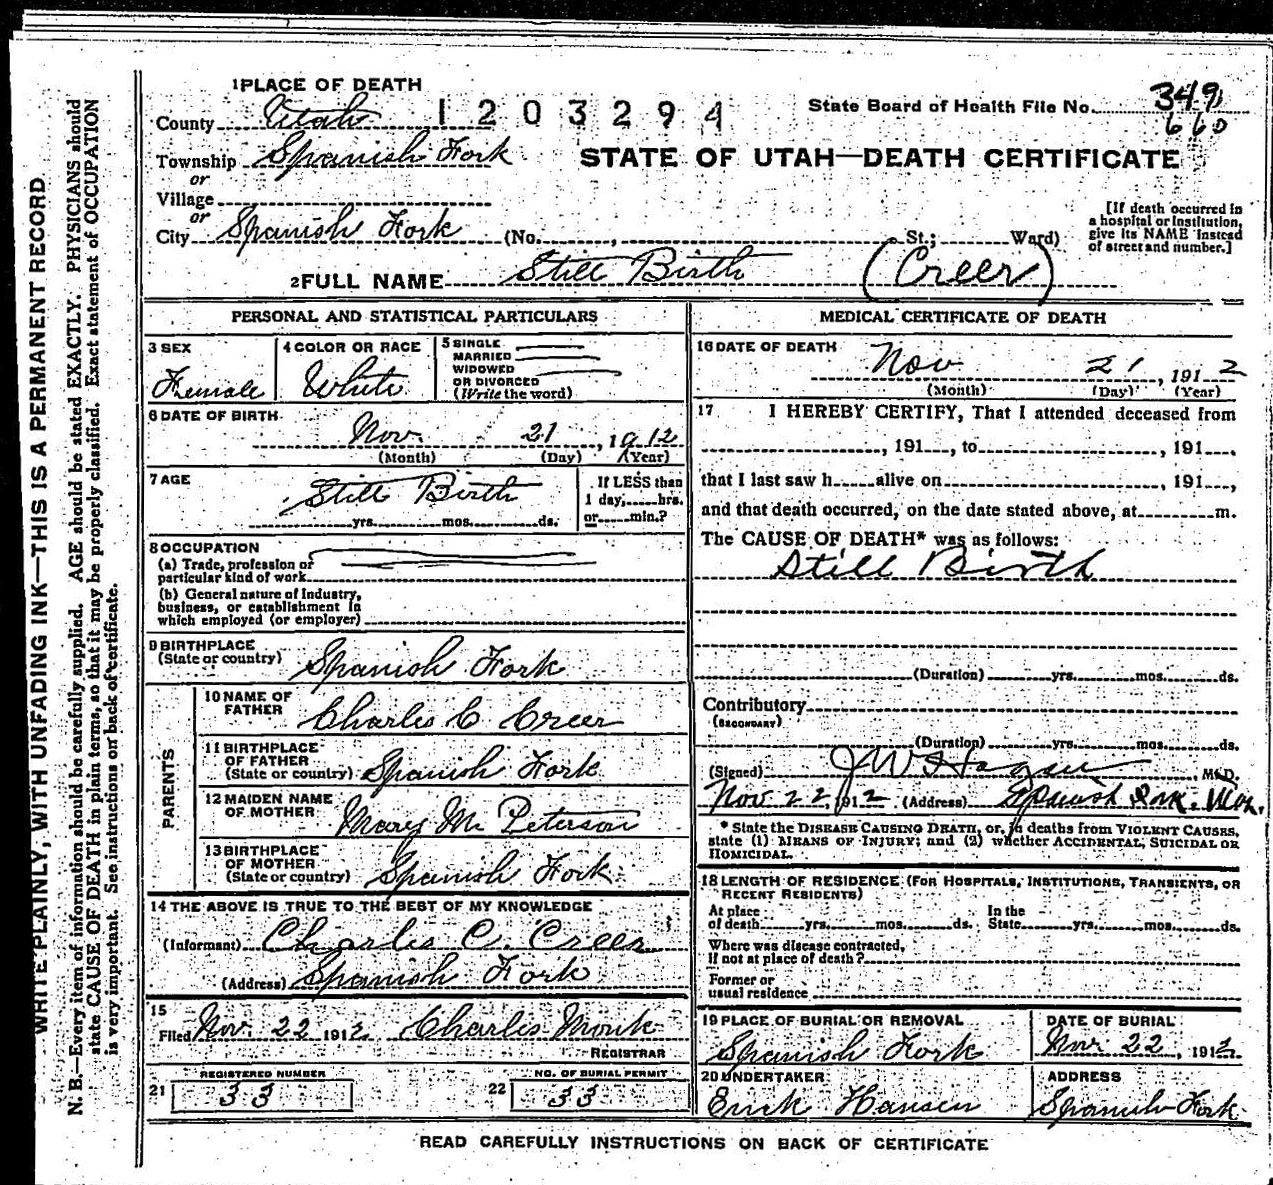 1 PLACE OF DEATH
County Utah 1203294 State Board of Health File No. 349
660
Township Spanish Fork STATE OF UTAH—DEATH CERTIFICATE
or
Village
or
City Spanish Fork (No. , St.; Ward)
[If death occurred in
a hospital or institution,
give its NAME instead
of street and number.]
2 FULL NAME Still Birth (Creer)
PERSONAL AND STATISTICAL PARTICULARS
3 SEX
Female
4 COLOR OR RACE
White
5 SINGLE
MARRIED
WIDOWED
OR DIVORCED
(Write the word)
6 DATE OF BIRTH
Nov. 21, 1912
(Month) (Day) (Year)
7 AGE
Still Birth
yrs. mos. ds.
If LESS than
1 day, hrs.
or min.?
8 OCCUPATION
(a) Trade, profession or
particular kind of work
(b) General nature of Industry,
business, or establishment in
which employed (or employer)
9 BIRTHPLACE
(State or country) Spanish Fork
PARENTS
10 NAME OF
FATHER Charles C Creer
11 BIRTHPLACE
OF FATHER
(State or country) Spanish Fork
12 MAIDEN NAME
OF MOTHER Mary M. Peterson
13 BIRTHPLACE
OF MOTHER
(State or country) Spanish Fork
14 THE ABOVE IS TRUE TO THE BEST OF MY KNOWLEDGE
(Informant) Charles C. Creer
(Address) Spanish Fork
15
Filed Nov. 22 1912 Charles Monk
REGISTRAR
21 REGISTERED NUMBER
33
22 NO. OF BURIAL PERMIT
33
MEDICAL CERTIFICATE OF DEATH
16 DATE OF DEATH
Nov 21, 1912
(Month) (Day) (Year)
17 I HEREBY CERTIFY, That I attended deceased from
, 191 , to , 191 .
that I last saw h alive on , 191 ,
and that death occurred, on the date stated above, at m.
The CAUSE OF DEATH* was as follows:
Still Birth
(Duration) yrs. mos. ds.
Contributory
(SECONDARY)
(Duration) yrs. mos. ds.
(Signed) J W Hagan, M.D.
Nov 22 1912 (Address) Spanish Fork.
* State the DISEASE CAUSING DEATH, or, in deaths from VIOLENT CAUSES,
state (1) MEANS OF INJURY; and (2) whether ACCIDENTAL, SUICIDAL OR
HOMICIDAL.
18 LENGTH OF RESIDENCE (FOR HOSPITALS, INSTITUTIONS, TRANSIENTS, OR
RECENT RESIDENTS)
At place
of death yrs. mos. ds.
In the
State yrs. mos. ds.
Where was disease contracted,
if not at place of death?
Former or
usual residence
19 PLACE OF BURIAL OR REMOVAL
Spanish Fork
DATE OF BURIAL
Nov. 22, 1912
20 UNDERTAKER
Erick Hansen
ADDRESS
Spanish Fork
READ CAREFULLY INSTRUCTIONS ON BACK OF CERTIFICATE
WRITE PLAINLY, WITH UNFADING INK—THIS IS A PERMANENT RECORD
N. B.—Every item of information should be carefully supplied. AGE should be stated EXACTLY. PHYSICIANS should
state CAUSE OF DEATH in plain terms, so that it may be properly classified. Exact statement of OCCUPATION
is very important. See instructions on back of certificate.